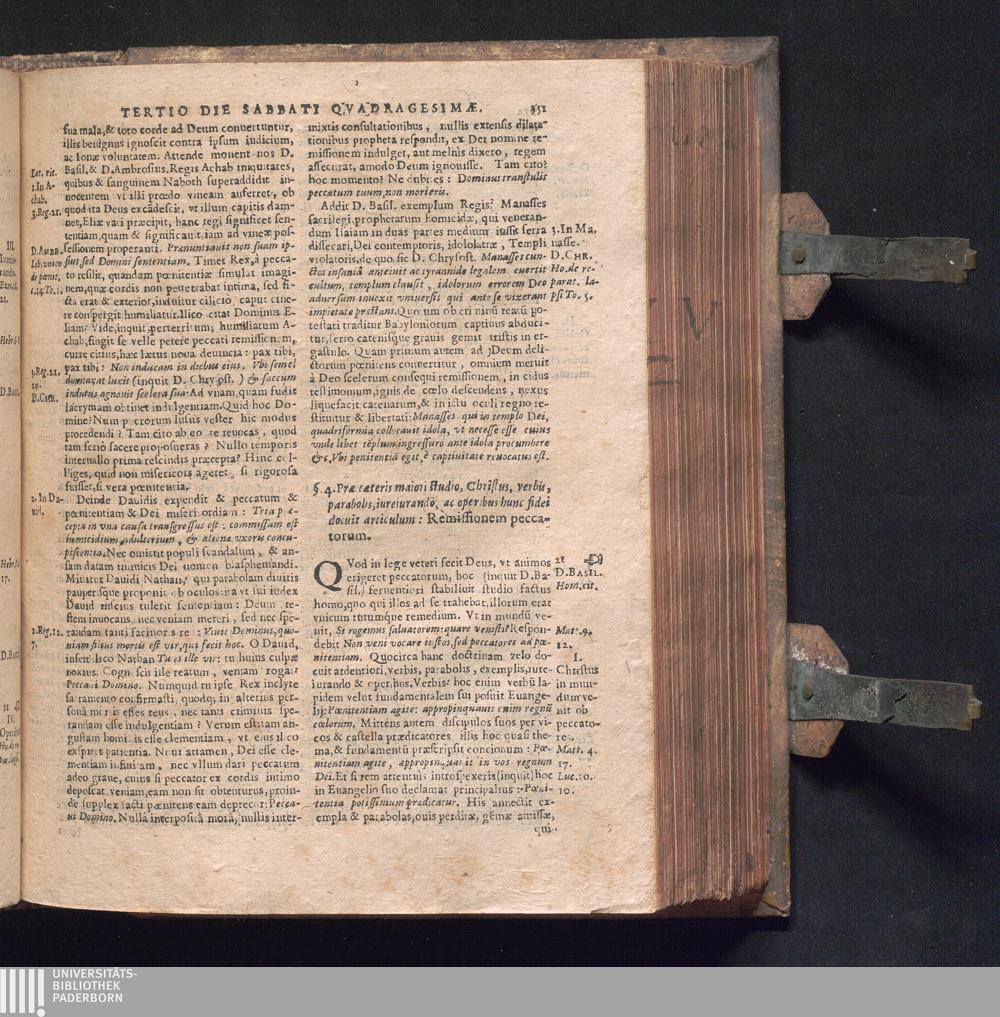 TERTIO DIE SABBATI QVADRAGESIMÆ. 351
sua mala, & toto corde ad Deum conuertuntur,
illis benignus ignoscit contra ipsum iudicium,
ac Ionæ voluntatem. Attende monent nos D.
Basil. & D. Ambrosius. Regis Achab iniquitates,
quibus & sanguinem Naboth superaddidit in-
nocentem vt illi prædo vineam auferret, ob
quod ita Deus excãdescit, vt illum capitis dam-
net, Eliæ vati præcipit, hanc regi significet sen-
tentiam, quam & significauit, iam ad vineæ pos-
sessionem properanti. Prænuntiauit non suam ip-
sius, sed Domini sententiam. Timet Rex, à pecca-
to resilit, quandam pœnitentiæ simulat imagi-
nem, quæ cordis non penetrabat intima, sed fi-
cta erat & exterior, induitur cilicio, caput cine-
re conspergit humiliatur. Ilico citat Dominus E-
liam: Vide, inquit, perterritum, humiliatum A-
chab, fingit se velle petere peccati remissionem,
curre citius, hæc lætus noua denuncia: pax tibi,
pax tibi: Non inducam in diebus eius. Vbi semel
duntaxat luxit (inquit D. Chrysost.) & saccum
indutus agnouit scelera sua: Ad vnam, quam fudit
lacrymam obtinet indulgentiam. Quid hoc Do-
mine? Num puerorum lusus vester hic modus
procedendi? Tam cito ab eo te reuocas, quod
tam serio facere proposueras? Nullo temporis
interuallo prima rescindis præcepta? Hinc col-
liges, quid non misericors ageret, si rigorosa
fuisset, si vera pœnitentia.
Deinde Dauidis expendit & peccatum &
pœnitentiam & Dei misericordiam: Tria præ-
cepta in vna causa transgressus est: commissum est
homicidium, adulterium, & alienæ vxoris concu-
piscentia. Nec omittit populi scandalum, & an-
sam datam inimicis Dei nomen blasphemandi.
Mittitur Dauidi Nathan, qui parabolam diuitis
pauperisque proponit ob oculos: ita vt sui iudex
Dauid inscius tulerit sententiam: Deum te-
stem inuocans, nec veniam mereri, sed nec spe-
randam tanti facinoris reo: Viuit Dominus, quo-
niam filius mortis est vir, qui fecit hoc. O Dauid,
infert ilico Nathan Tu es ille vir: tu huius culpæ
noxius. Cognoscit ille reatum, veniam rogat:
Peccaui Domino. Numquid tu ipse Rex inclyte
sacramento confirmasti, quodq; in alterius per-
sona mortis esses reus, nec tanti criminis spe-
randam esse indulgentiam? Verum est: tam an-
gustam hominis esse clementiam, vt eius ilico
expiret patientia. Noui attamen, Dei esse cle-
mentiam infinitam, nec vllum dari peccatum
adeo graue, cuius si peccator ex cordis intimo
deposcat veniam, eam non sit obtenturus, proin-
de supplex facti pœnitens eam deprecor: Pecca-
ui Domino. Nullâ interpositâ morâ, nullis inter-
Loc. cit.
1. In A-
chab.
3. Reg. 21.
D. AMBR.
Lib. vnico
de pœnit.
c. 14. To. 1.
3. Reg. 21.
29.
D. CHR.
2. In Da-
uid.
2. Reg. 12.
7.
mixtis consultationibus, nullis extensis dilata-
tionibus propheta respondit, ex Dei nomine re-
missionem indulget, aut melius dixero, regem
assecurat, amodo Deum ignouisse. Tam cito?
hoc momento? Ne dubites: Dominus transtulit
peccatum tuum, non morieris.
Addit D. Basil. exemplum Regis? Manasses
sacrilegi, prophetarum homicidæ, qui veneran-
dum Isaiam in duas partes medium iussit serra
dissecari, Dei contemptoris, idololatræ, Templi
violatoris, de quo sic D. Chrysost. Manasses cun-
ctos insaniâ anteiuit ac tyrannide legalem euertit
cultum, templum clausit, idolorum errorem Deo
aduersum inuexit vniuersis qui ante se vixerant
impietate præstans. Quorum ob criminũ reatũ po-
testati traditur Babyloniorum captiuus abduci-
tur, ferro catenisque grauis gemit tristis in er-
gastulo. Quam primum autem ad Deum deli-
ctorum pœnitens conuertitur, omnium meruit
à Deo scelerum consequi remissionem, in cuius
testimonium, ignis de cœlo descendens, nexus
liquefacit catenarum, & in ictu oculi regno re-
stituitur & libertati: Manasses qui in templo Dei,
quadriformia collocauit idola, vt necesse esse cuius
vnde libet tẽplum ingressuro ante idola procumbere
&c. Vbi penitentiã egit, è captiuitate reuocatus est.
§. 4. Præ cæteris maiori studio, Christus, verbis,
parabolis, iureiurando, ac operibus hunc fidei
docuit articulum: Remissionem pecca-
torum.
QVod in lege veteri fecit Deus, vt animos
erigeret peccatorum, hoc (inquit D. Ba-
sil.) feruentiori stabiliuit studio factus
homo, quo qui illos ad se trahebat, illorum erat
vnicum tutumque remedium. Vt in mundũ ve-
nit, Si rogemus saluatorem: quare venisti? Respon-
debit Non veni vocare iustos, sed peccatores ad pœ-
nitentiam. Quocirca hanc doctrinam zelo do-
cuit ardentiori, verbis, parabolis, exemplis, iure-
iurando & operibus. Verbis: hoc enim verbũ la-
pidem velut fundamentalem sui posuit Euange-
lij: Pœnitentiam agite: appropinquauit enim regnũ
cœlorum. Mittens autem discipulos suos per vi-
cos & castella prædicatores illis hoc quasi the-
ma, & fundamentũ præscripsit concionum: Pœ-
nitentiam agite, appropinquauit in vos regnum
Dei. Et si rem attentius introspexeris (inquit) hoc
in Euangelio suo declamat principalius: Pœni-
tentia potissimum prædicatur. His annectit ex-
empla & parabolas, ouis perditæ, gẽmæ amissæ,
qui
3. In Ma-
nasse.
D. CHR.
Ho. de re-
parat. la-
psi To. 5.
21
D. BASIL.
Hom. cit.
Mat. 9.
12.
I.
Christus
in mun-
dum ve-
nit ob
peccato-
res.
Matt. 4.
17.
Luc. 10.
10.
UNIVERSITÄTS-
BIBLIOTHEK
PADERBORN